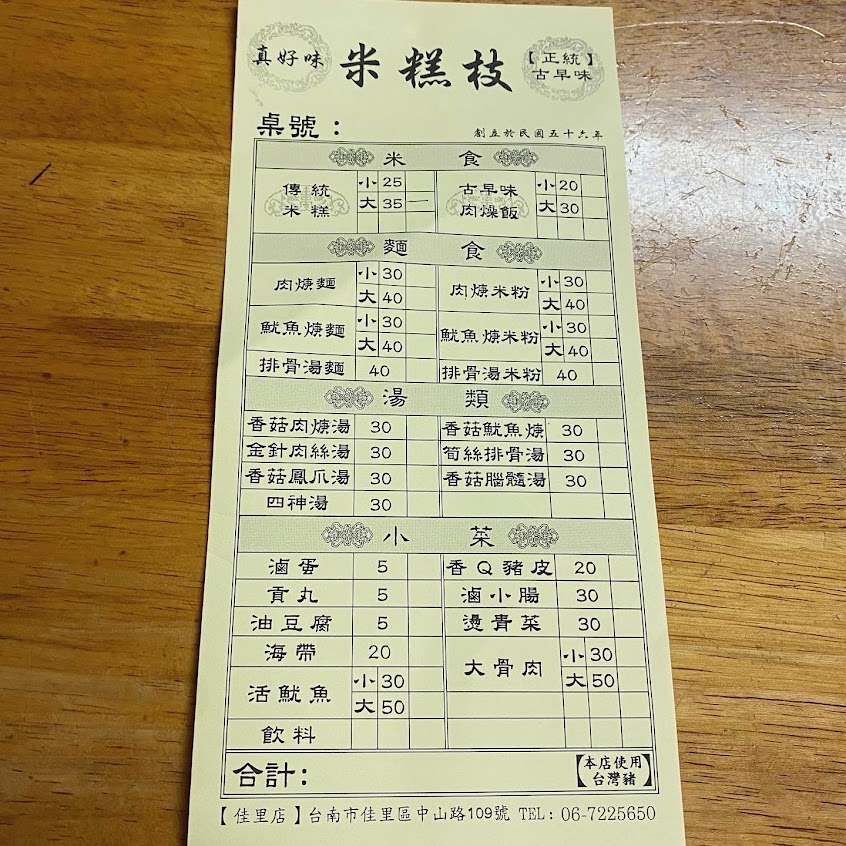 真好味 米糕枝 【正統】古早味
桌號：
創立於民國五十六年
米食
傳統米糕 小 25 大 35 一
古早味肉燥飯 小 20 大 30
麵食
肉焿麵 小 30 大 40
肉焿米粉 小 30 大 40
魷魚焿麵 小 30 大 40
魷魚焿米粉 小 30 大 40
排骨湯麵 40
排骨湯米粉 40
湯類
香菇肉焿湯 30
香菇魷魚焿 30
金針肉絲湯 30
筍絲排骨湯 30
香菇鳳爪湯 30
香菇腦髓湯 30
四神湯 30
小菜
滷蛋 5
香Q豬皮 20
貢丸 5
滷小腸 30
油豆腐 5
燙青菜 30
海帶 20
大骨肉 小 30 大 50
活魷魚 小 30 大 50
飲料
合計：
【本店使用台灣豬】
【佳里店】台南市佳里區中山路109號 TEL：06-7225650